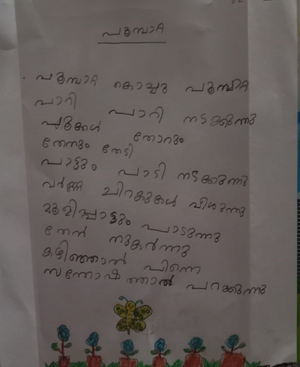 പൂമ്പാറ്റ
പൂമ്പാറ്റ കൊച്ചു പൂമ്പാറ്റ
പാറി പാറി നടക്കുന്നു
പൂക്കൾ തോറും
തേനും തേടി
പാട്ടും പാടി നടക്കുന്നു
വർണ്ണ ചിറകുകൾ വീശുന്നു
മൂളിപ്പാട്ടും പാടുന്നു
തേൻ നുകർന്നു
കഴിഞ്ഞാൽ പിന്നെ
സന്തോഷത്താൽ പറക്കുന്നു